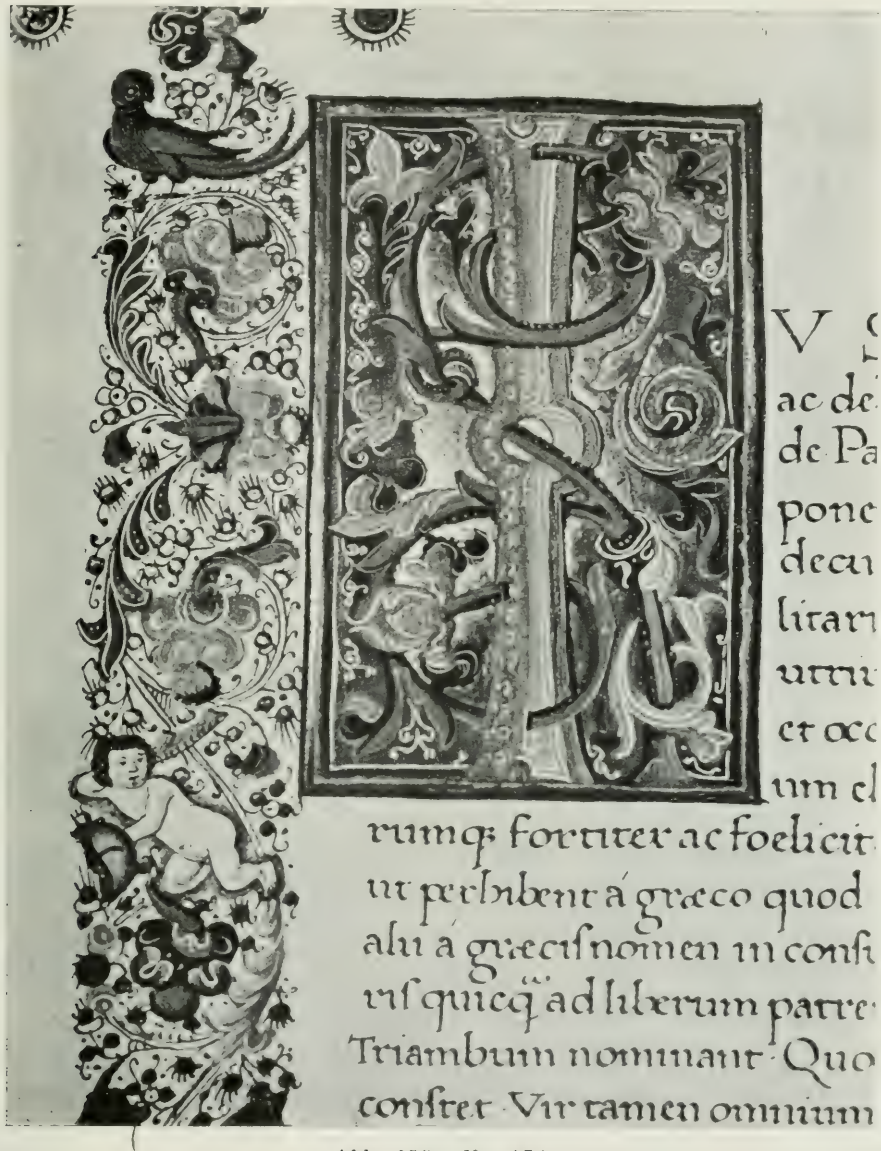 V
ac de
de Pa
pone
decu
litari
utriu
et occ
um el
rumq; fortiter ac foelicit
ut perhibent á græco quod
alii á græcis nomen in consi
ris quicq̃ ad liberum patre
Triambum nominant· Quo
constet· Vir tamen omnium